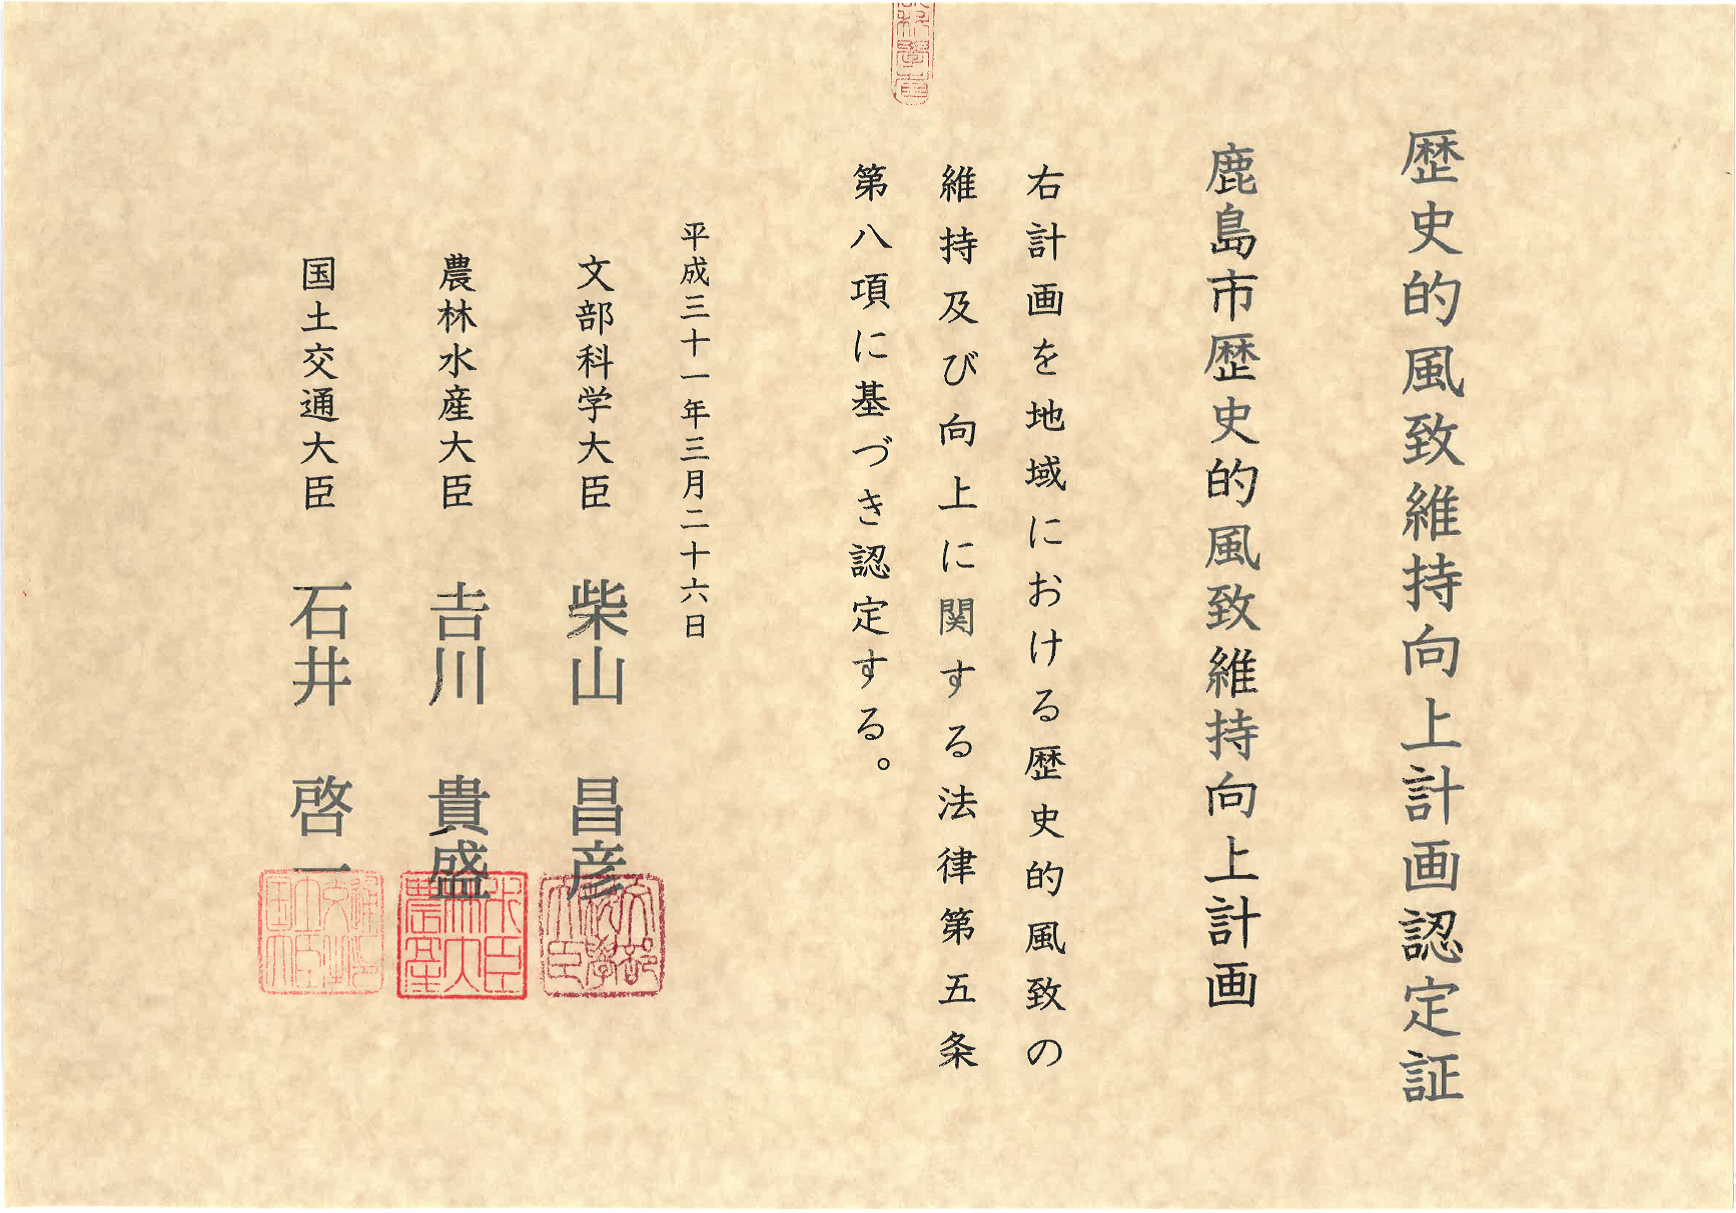 歴史的風致維持向上計画認定証
鹿島市歴史的風致維持向上計画
右計画を地域における歴史的風致の
維持及び向上に関する法律第五条
第八項に基づき認定する。
平成三十一年三月二十六日
文部科学大臣 柴山 昌彦
農林水産大臣 𠮷川 貴盛
国土交通大臣 石井 啓一